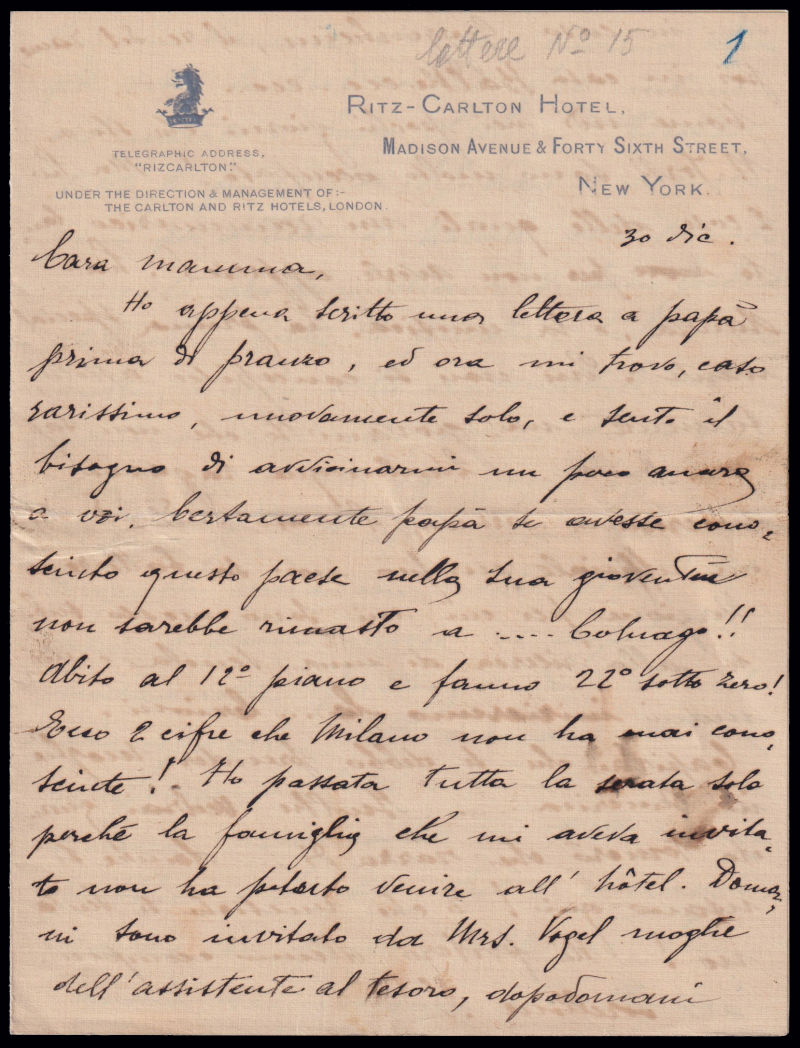 lettere Nº 15
1
RITZ-CARLTON HOTEL,
MADISON AVENUE & FORTY SIXTH STREET,
NEW YORK.
TELEGRAPHIC ADDRESS,
"RIZCARLTON."
UNDER THE DIRECTION & MANAGEMENT OF:-
THE CARLTON AND RITZ HOTELS, LONDON.
30 dic.
Cara mamma,
Ho appena scritto una lettera a papà
prima di pranzo, ed ora mi trovo, caso
rarissimo, nuovamente solo, e sento il
bisogno di avvicinarmi un poco ancora
a voi. Certamente papà se avesse cono=
sciuto questo paese nella sua gioventù
non sarebbe rimasto a .... Cornago!!
Abito al 12º piano e fanno 22º sotto zero!
Ecco 2 cifre che Milano non ha mai cono=
sciute! Ho passata tutta la serata solo
perché la famiglia che mi aveva invita=
to non ha potuto venire all' hôtel. Doma=
ni sono invitato da Mrs. Vogel moglie
dell'assistente al tesoro, dopodomani